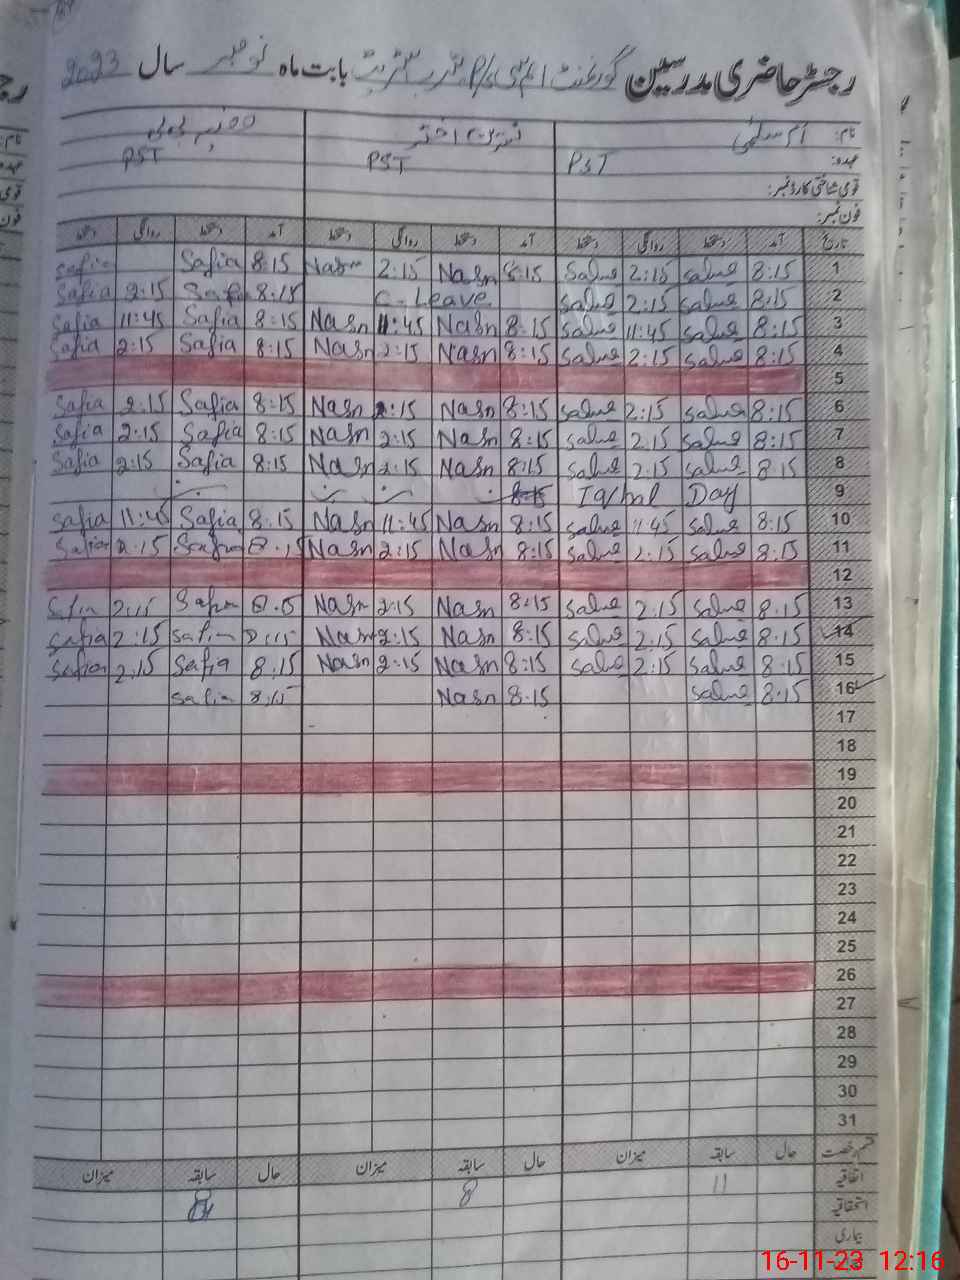 رجسٹر حاضری مدرسین گورنمنٹ بابت ماہ نومبر سال 2023
نام: اختر صفیہ بی بی
عہدہ: PST PST PST
قومی شناختی کارڈ نمبر:
فون نمبر:
تاریخ آمد دستخط روانگی دستخط آمد دستخط روانگی دستخط آمد دستخط روانگی دستخط
1 8:15 Salma 2:15 Salma 8:15 Nasn 2:15 Nasn 8:15 Safia Safia
2 8:15 Salma 2:15 Salma C-Leave 8:15 Safia 2:15 Safia
3 8:15 Salma 11:45 Salma 8:15 Nasn 11:45 Nasn 8:15 Safia 11:45 Safia
4 8:15 Salma 2:15 Salma 8:15 Nasn 2:15 Nasn 8:15 Safia 2:15 Safia
5
6 8:15 Salma 2:15 Salma 8:15 Nasn 2:15 Nasn 8:15 Safia 2:15 Safia
7 8:15 Salma 2:15 Salma 8:15 Nasn 2:15 Nasn 8:15 Safia 2:15 Safia
8 8:15 Salma 2:15 Salma 8:15 Nasn 2:15 Nasn 8:15 Safia 2:15 Safia
9 Iqbal Day
10 8:15 Salma 11:45 Salma 8:15 Nasn 11:45 Nasn 8:15 Safia 11:45 Safia
11 8:15 Salma 2:15 Salma 8:15 Nasn 2:15 Nasn 8:15 Safia 2:15 Safia
12
13 8:15 Salma 2:15 Salma 8:15 Nasn 2:15 Nasn Safia 2:15 Safia
14 8:15 Salma 2:15 Salma 8:15 Nasn 2:15 Nasn 8:15 Safia 2:15 Safia
15 8:15 Salma 2:15 Salma 8:15 Nasn 2:15 Nasn 8:15 Safia 2:15 Safia
16 8:15 Salma 8:15 Nasn 8:15 Safia
17
18
19
20
21
22
23
24
25
26
27
28
29
30
31
قسم رخصت حال سابقہ میزان حال سابقہ میزان حال سابقہ میزان
اتفاقیہ 11 8
استحقاقیہ
بیماری
16-11-23 12:16